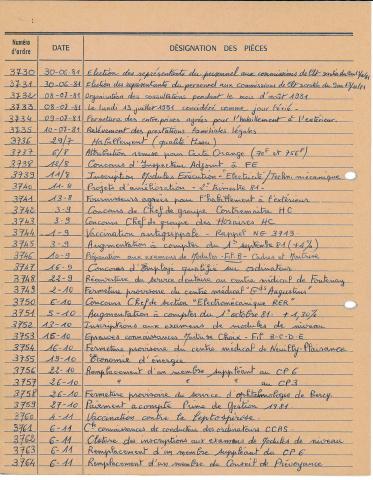 Numéro d'ordre DATE DÉSIGNATION DES PIÈCES
3730 30-06-81 Election des représentants du personnel aux commissions de
3731 30-06-81 Election des représentants du personnel aux commissions de
3732 08-07-81 Organisation des consultations pendant le mois d'août 1981
3733 08-07-81 Le lundi 13 juillet 1981 considéré comme jour férié
3734 09-07-81 Fermeture des entreprises agréés pour l'habillement à l'extérieur.
3735 10-07-81 Relèvement des prestations familiales légales
3736 29/7 Habillement (qualité
3737 6/8 Attribution remise pour Carte Orange (70F et 75
3738 10/8 Concours d'Inspecteur Adjoint à FE
3739 11/8 Inscription Modules Exécution - Electricité/Techni. mécanique
3740 11-8 Projets d'amélioration - 1er Trimestre 81-
3741 13-8 Fournisseurs agréés pour l'habillement à l'extérieur
3742 3-9 Concours de Chef de groupe Contremaître MC
3743 3-9 Concours Chef de groupe des Horaires HC
3744 1-9 Vaccination antigrippale - Rappel NE 3713
3745 3-9 Augmentation à compter du 1er septembre 81 (+1%)
3746 10-9 Préparation aux examens de Modules - FIT B - Cadres et Maîtrise
3747 16-9 Concours d'Employé qualifié sur ordinateur
3748 22-9 Réouverture du service dentaire au centre médical de Fontenay
3749 2-10 Fermeture provisoire du centre médical "Gds Augustins"
3750 6-10 Concours Chef de section "Electromécanique RER"
3751 5-10 Augmentation à compter du 1er octobre 81 + 1,30%
3752 13-10 Inscriptions aux examens de modules de niveau
3753 15-10 Epreuves connaissances Modules Choix - FIT B-C-D-E
3754 16-10 Fermeture provisoire du centre médical de Neuilly-Plaisance
3755 19-10 Economie d'énergie
3756 22-10 Remplacement d'un membre suppléant au CP 6
3757 26-10 " " " au CP3
3758 26-10 Fermeture provisoire du service d'ophtalmologie de Bercy
3759 27-10 Paiement acompte Prime de Gestion 1981
3760 4-11 Vaccination contre la Leptospirose
3761 6-11 connaissances de conducteur des ordinateurs CCAS
3762 6-11 Clôture des inscriptions aux examens de Modules de niveau
3763 6-11 Remplacement d'un membre suppléant du CP 6
3764 6-11 Remplacement d'un membre du Conseil de Prévoyance